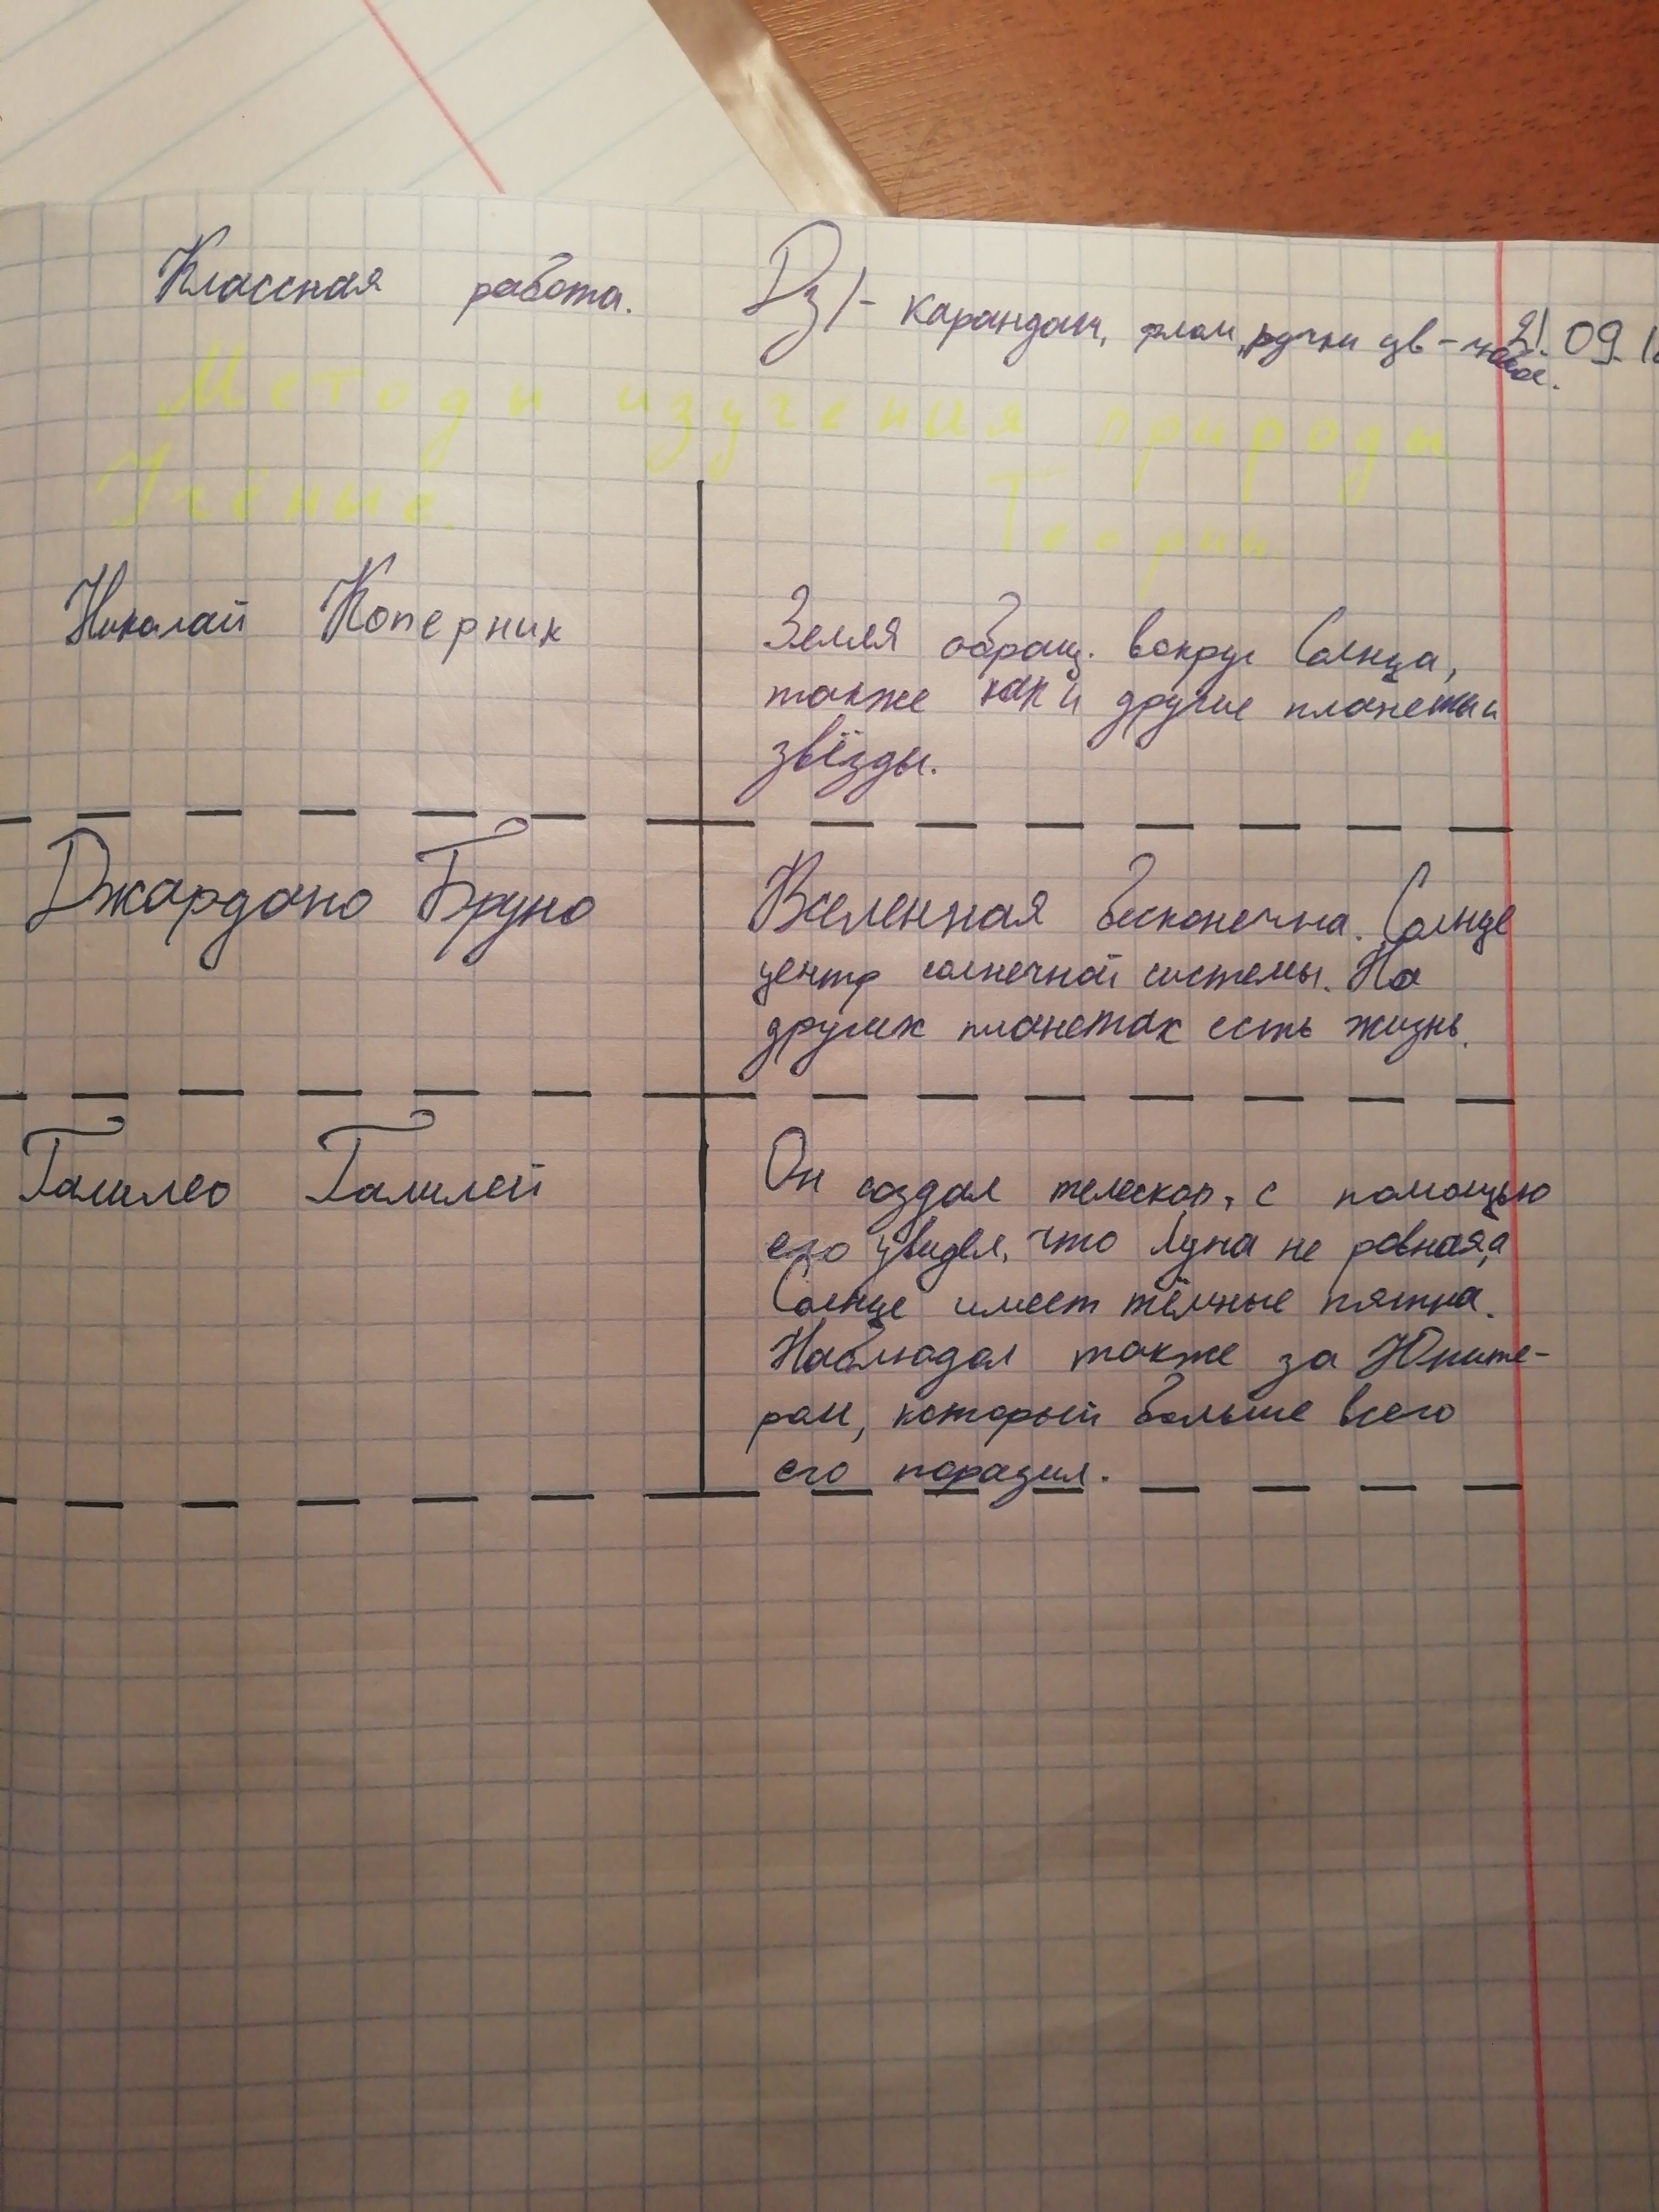 Классная работа.
Дз/- карандаш, флом, ручки цв-
21.09.
Методы изучения природы
Учёные.
Теории.
Николай Коперник
Земля обращ. вокруг Солнца,
также как и другие планеты и
звёзды.
Джардано Бруно
Вселенная бесконечна. Солнце
центр солнечной системы. На
других планетах есть жизнь.
Галилео Галилей
Он создал телескоп, с помощью
его увидел, что Луна не ровная, а
Солнце имеет тёмные пятна.
Наблюдал также за Юпите-
ром, который больше всего
его поразил.